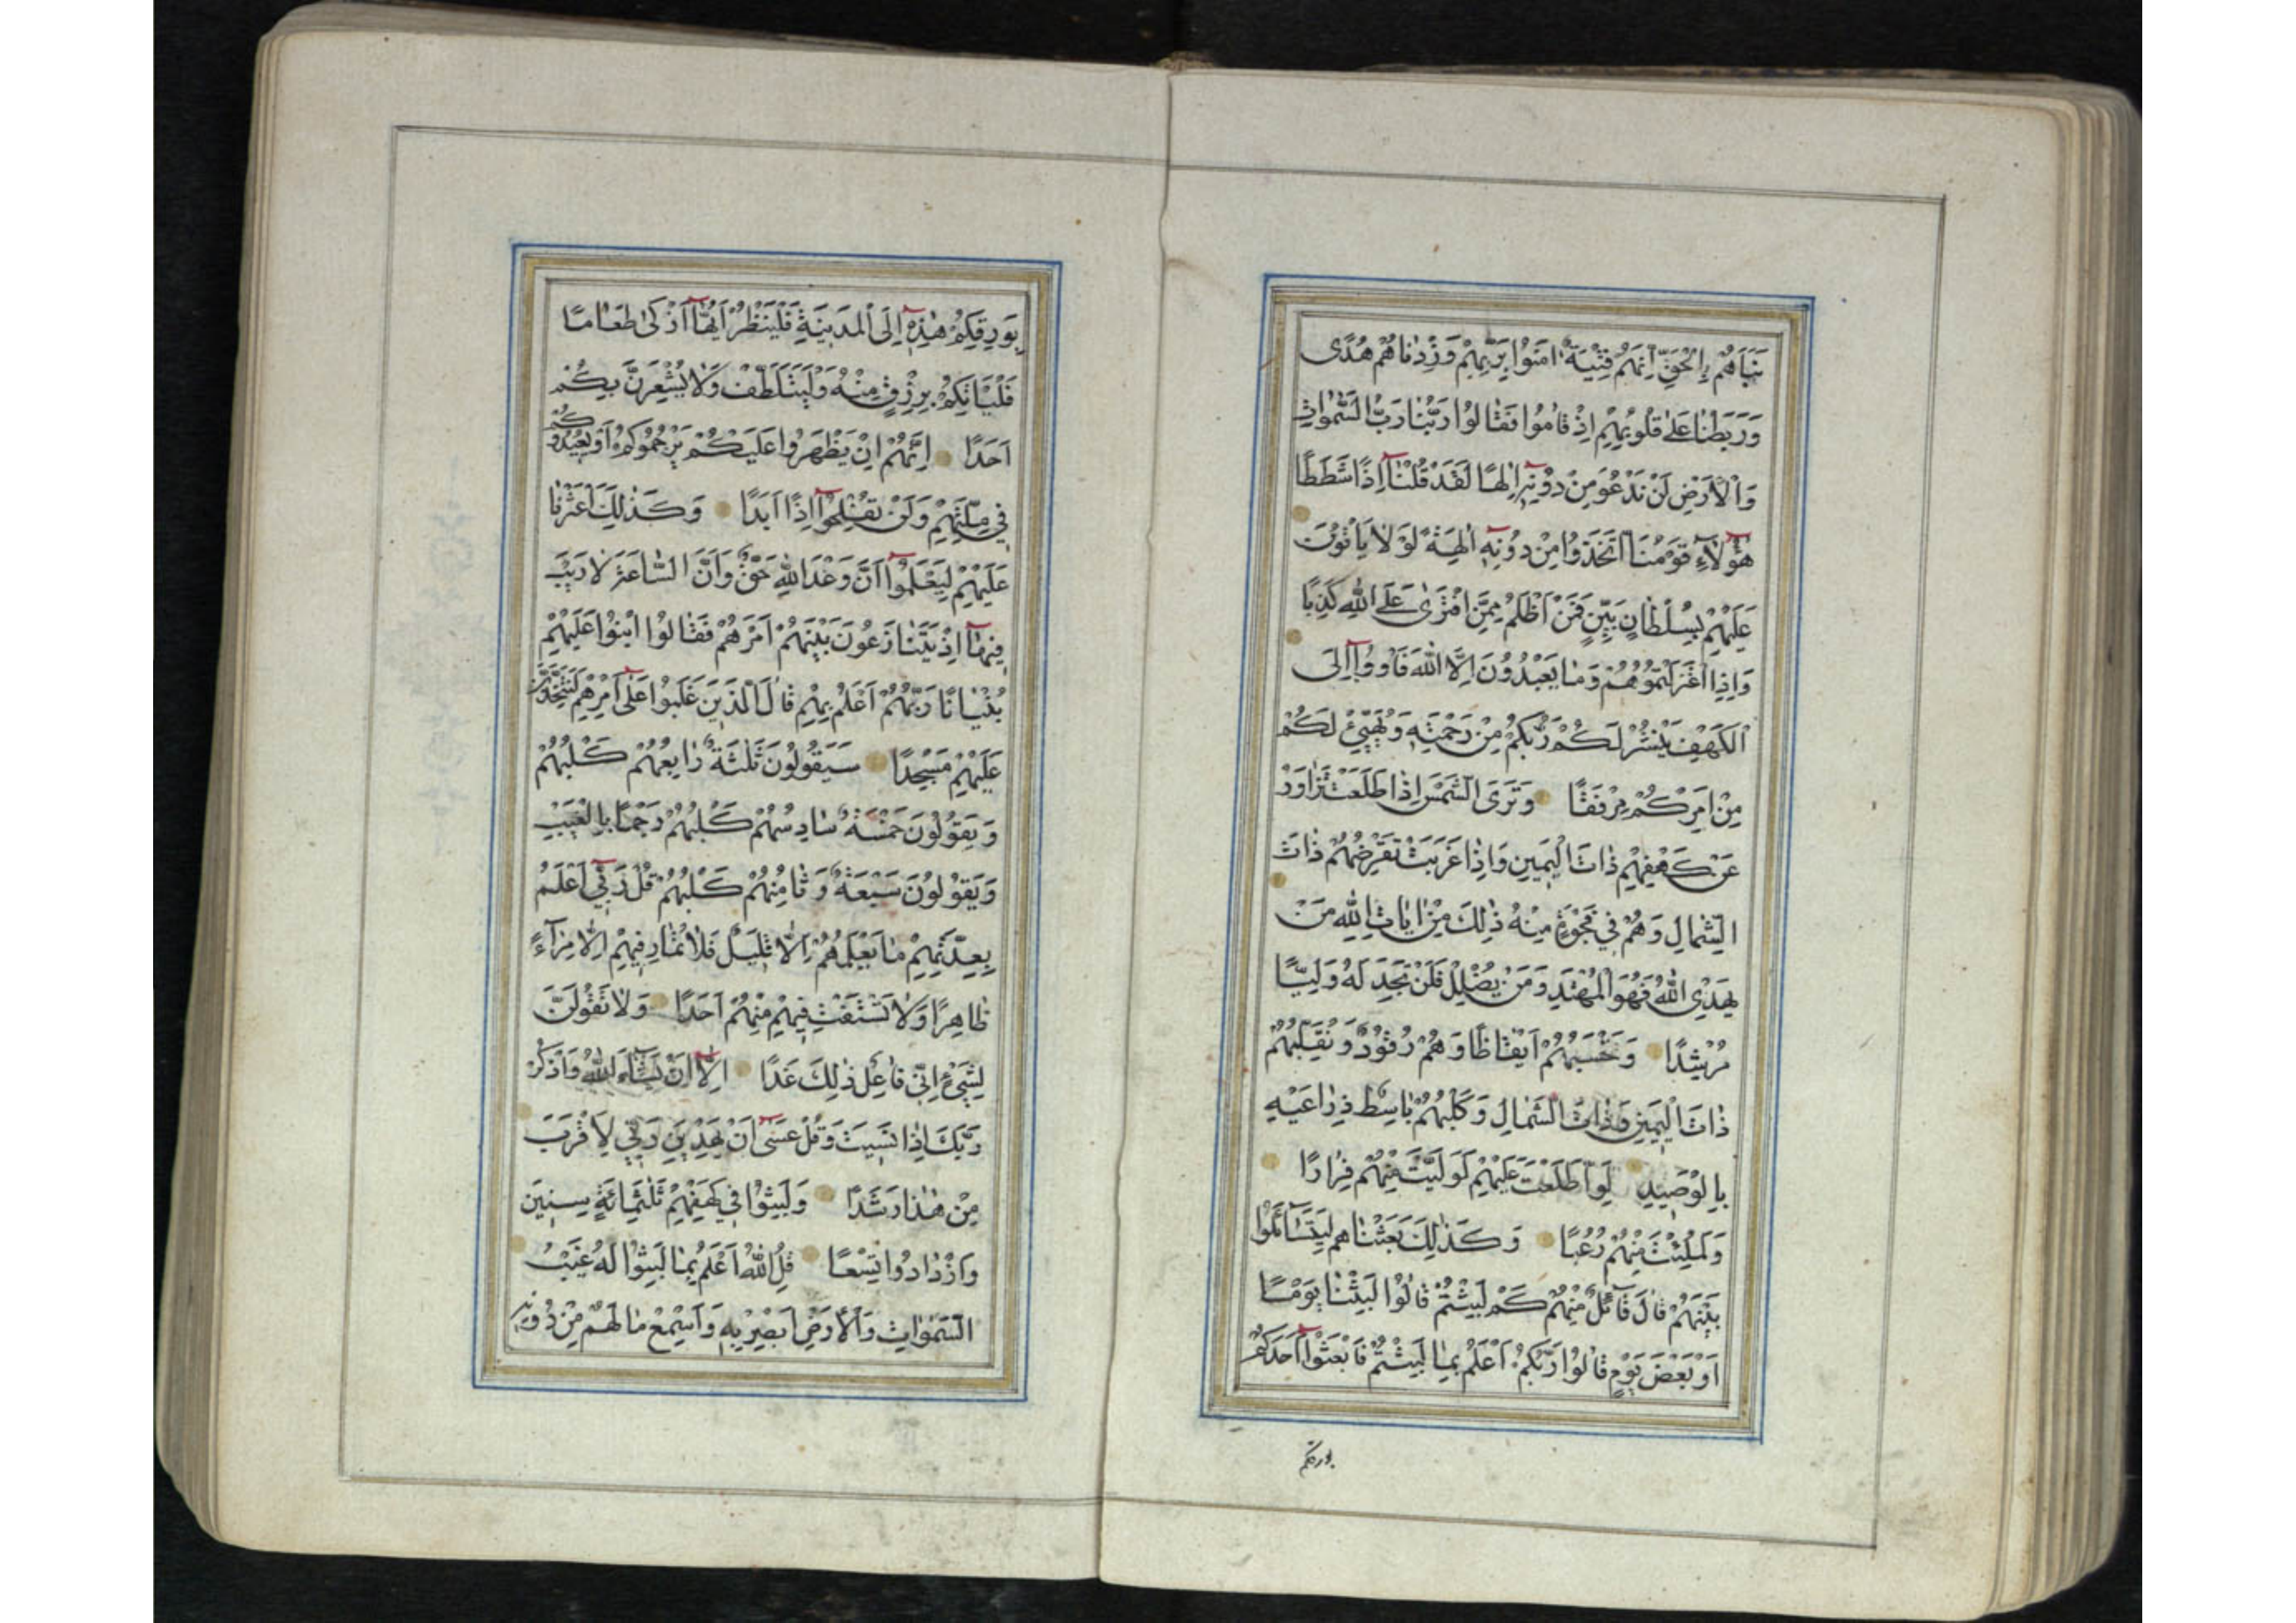 نَبَاَهُمْ بِالْحَقِّ اِنَّهُمْ فِتْيَةٌ اٰمَنُوا بِرَبِّهِمْ وَزِدْنَاهُمْ هُدًى
وَرَبَطْنَا عَلٰى قُلُوبِهِمْ اِذْ قَامُوا فَقَالُوا رَبُّنَا رَبُّ السَّمٰوَاتِ
وَالْاَرْضِ لَنْ نَدْعُوَ مِنْ دُونِهٖٓ اِلٰهًا لَقَدْ قُلْنَآ اِذًا شَطَطًا
هٰٓؤُلَآءِ قَوْمُنَا اتَّخَذُوا مِنْ دُونِهٖٓ اٰلِهَةً لَوْلَا يَاْتُونَ
عَلَيْهِمْ بِسُلْطَانٍ بَيِّنٍ فَمَنْ اَظْلَمُ مِمَّنِ افْتَرٰى عَلَى اللّٰهِ كَذِبًا
وَاِذِ اعْتَزَلْتُمُوهُمْ وَمَا يَعْبُدُونَ اِلَّا اللّٰهَ فَاْوُوآ اِلَى
الْكَهْفِ يَنْشُرْ لَكُمْ رَبُّكُمْ مِنْ رَحْمَتِهٖ وَيُهَيِّئْ لَكُمْ
مِنْ اَمْرِكُمْ مِرْفَقًا وَتَرَى الشَّمْسَ اِذَا طَلَعَتْ تَزَاوَرُ
عَنْ كَهْفِهِمْ ذَاتَ الْيَمِينِ وَاِذَا غَرَبَتْ تَقْرِضُهُمْ ذَاتَ
الشِّمَالِ وَهُمْ فِي فَجْوَةٍ مِنْهُ ذٰلِكَ مِنْ اٰيَاتِ اللّٰهِ مَنْ
يَهْدِى اللّٰهُ فَهُوَ الْمُهْتَدِ وَمَنْ يُضْلِلْ فَلَنْ تَجِدَ لَهُ وَلِيًّا
مُرْشِدًا وَتَحْسَبُهُمْ اَيْقَاظًا وَهُمْ رُقُودٌ وَنُقَلِّبُهُمْ
ذَاتَ الْيَمِينِ وَذَاتَ الشِّمَالِ وَكَلْبُهُمْ بَاسِطٌ ذِرَاعَيْهِ
بِالْوَصِيدِ لَوِ اطَّلَعْتَ عَلَيْهِمْ لَوَلَّيْتَ مِنْهُمْ فِرَارًا
وَلَمُلِئْتَ مِنْهُمْ رُعْبًا وَكَذٰلِكَ بَعَثْنَاهُمْ لِيَتَسَآئَلُوا
بَيْنَهُمْ قَالَ قَآئِلٌ مِنْهُمْ كَمْ لَبِثْتُمْ قَالُوا لَبِثْنَا يَوْمًا
اَوْ بَعْضَ يَوْمٍ قَالُوا رَبُّكُمْ اَعْلَمُ بِمَا لَبِثْتُمْ فَابْعَثُوآ اَحَدَكُمْ
بورقكم
بِوَرِقِكُمْ هٰذِهٖٓ اِلَى الْمَدِينَةِ فَلْيَنْظُرْ اَيُّهَآ اَزْكٰى طَعَامًا
فَلْيَاْتِكُمْ بِرِزْقٍ مِنْهُ وَلْيَتَلَطَّفْ وَلَا يُشْعِرَنَّ بِكُمْ
اَحَدًا اِنَّهُمْ اِنْ يَظْهَرُوا عَلَيْكُمْ يَرْجُمُوكُمْ اَوْ يُعِيدُوكُمْ
فِي مِلَّتِهِمْ وَلَنْ تُفْلِحُوآ اِذًا اَبَدًا وَكَذٰلِكَ اَعْثَرْنَا
عَلَيْهِمْ لِيَعْلَمُوآ اَنَّ وَعْدَ اللّٰهِ حَقٌّ وَاَنَّ السَّاعَةَ لَا رَيْبَ
فِيهَآ اِذْ يَتَنَازَعُونَ بَيْنَهُمْ اَمْرَهُمْ فَقَالُوا ابْنُوا عَلَيْهِمْ
بُنْيَانًا رَبُّهُمْ اَعْلَمُ بِهِمْ قَالَ الَّذِينَ غَلَبُوا عَلٰٓى اَمْرِهِمْ لَنَتَّخِذَنَّ
عَلَيْهِمْ مَسْجِدًا سَيَقُولُونَ ثَلٰثَةٌ رَابِعُهُمْ كَلْبُهُمْ
وَيَقُولُونَ خَمْسَةٌ سَادِسُهُمْ كَلْبُهُمْ رَجْمًا بِالْغَيْبِ
وَيَقُولُونَ سَبْعَةٌ وَثَامِنُهُمْ كَلْبُهُمْ قُلْ رَبِّيٓ اَعْلَمُ
بِعِدَّتِهِمْ مَا يَعْلَمُهُمْ اِلَّا قَلِيلٌ فَلَا تُمَارِ فِيهِمْ اِلَّا مِرَآءً
ظَاهِرًا وَلَا تَسْتَفْتِ فِيهِمْ مِنْهُمْ اَحَدًا وَلَا تَقُولَنَّ
لِشَيْءٍ اِنِّي فَاعِلٌ ذٰلِكَ غَدًا اِلَّآ اَنْ يَشَآءَ اللّٰهُ وَاذْكُرْ
رَبَّكَ اِذَا نَسِيتَ وَقُلْ عَسٰٓى اَنْ يَهْدِيَنِ رَبِّي لِاَقْرَبَ
مِنْ هٰذَا رَشَدًا وَلَبِثُوا فِي كَهْفِهِمْ ثَلٰثَمِائَةٍ سِنِينَ
وَازْدَادُوا تِسْعًا قُلِ اللّٰهُ اَعْلَمُ بِمَا لَبِثُوا لَهُ غَيْبُ
السَّمٰوَاتِ وَالْاَرْضِ اَبْصِرْ بِهٖ وَاَسْمِعْ مَا لَهُمْ مِنْ دُونِهٖ